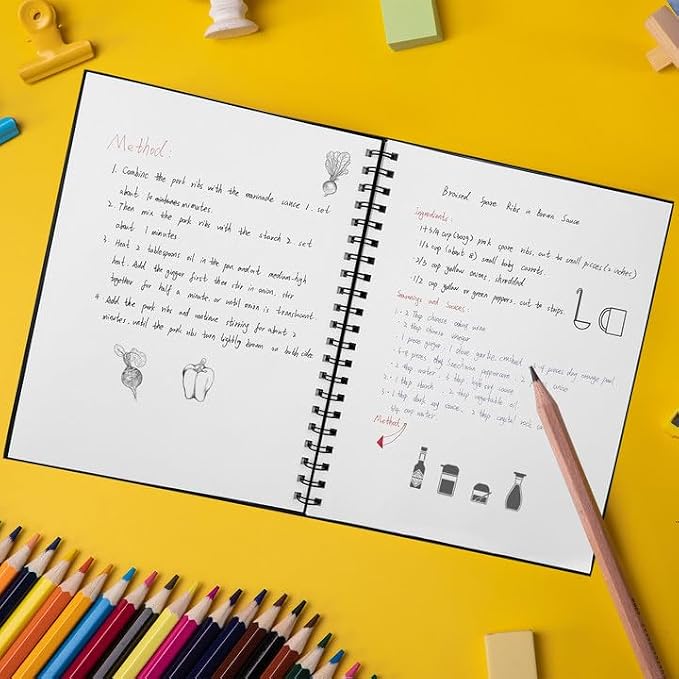 Method:
1. Combine the pork ribs with the marinade sauce 1. set
about 10 minutes.
2. Then mix the pork ribs with the starch 2. set
about 1 minutes.
3. Heat 2 tablespoons oil in the pan and wt medium-high
heat. Add the ginger first then stir in onion, stir
together for half a minute or until onion is translucent.
4. Add the pork ribs and continue stirring for about 2
minutes. until the pork ribs turn lightly brown on both sides
Braised Spare Ribs in Brown Sauce
Ingredients:
1+3/4 cup pork spare ribs, cut to small pieces (2 inches)
1/2 cup (about 8) small baby carrots.
2/3 cup yellow onions, shredded
1/2 cup yellow or green peppers, cut to strips
Seasonings and Sauces:
2 tbsp Chinese cooking wine
2 tbsp Chinese vinegar
1 piece ginger, 1 clove garlic crushed, pieces dry orange peel
pieces dry Szechuan peppercorn
2 tbsp water
1 tbsp starch 2 tbsp vegetable oil
1 tbsp dark soy sauce. 2 tbsp
1/4 cup water
Method